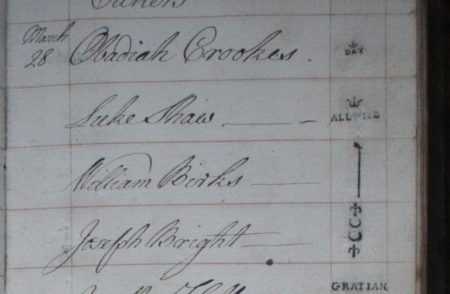 March
28 Obadiah Crookes. DAY
Luke Shaw ALLWISE
William Birks
Joseph Bright
GRATIAN